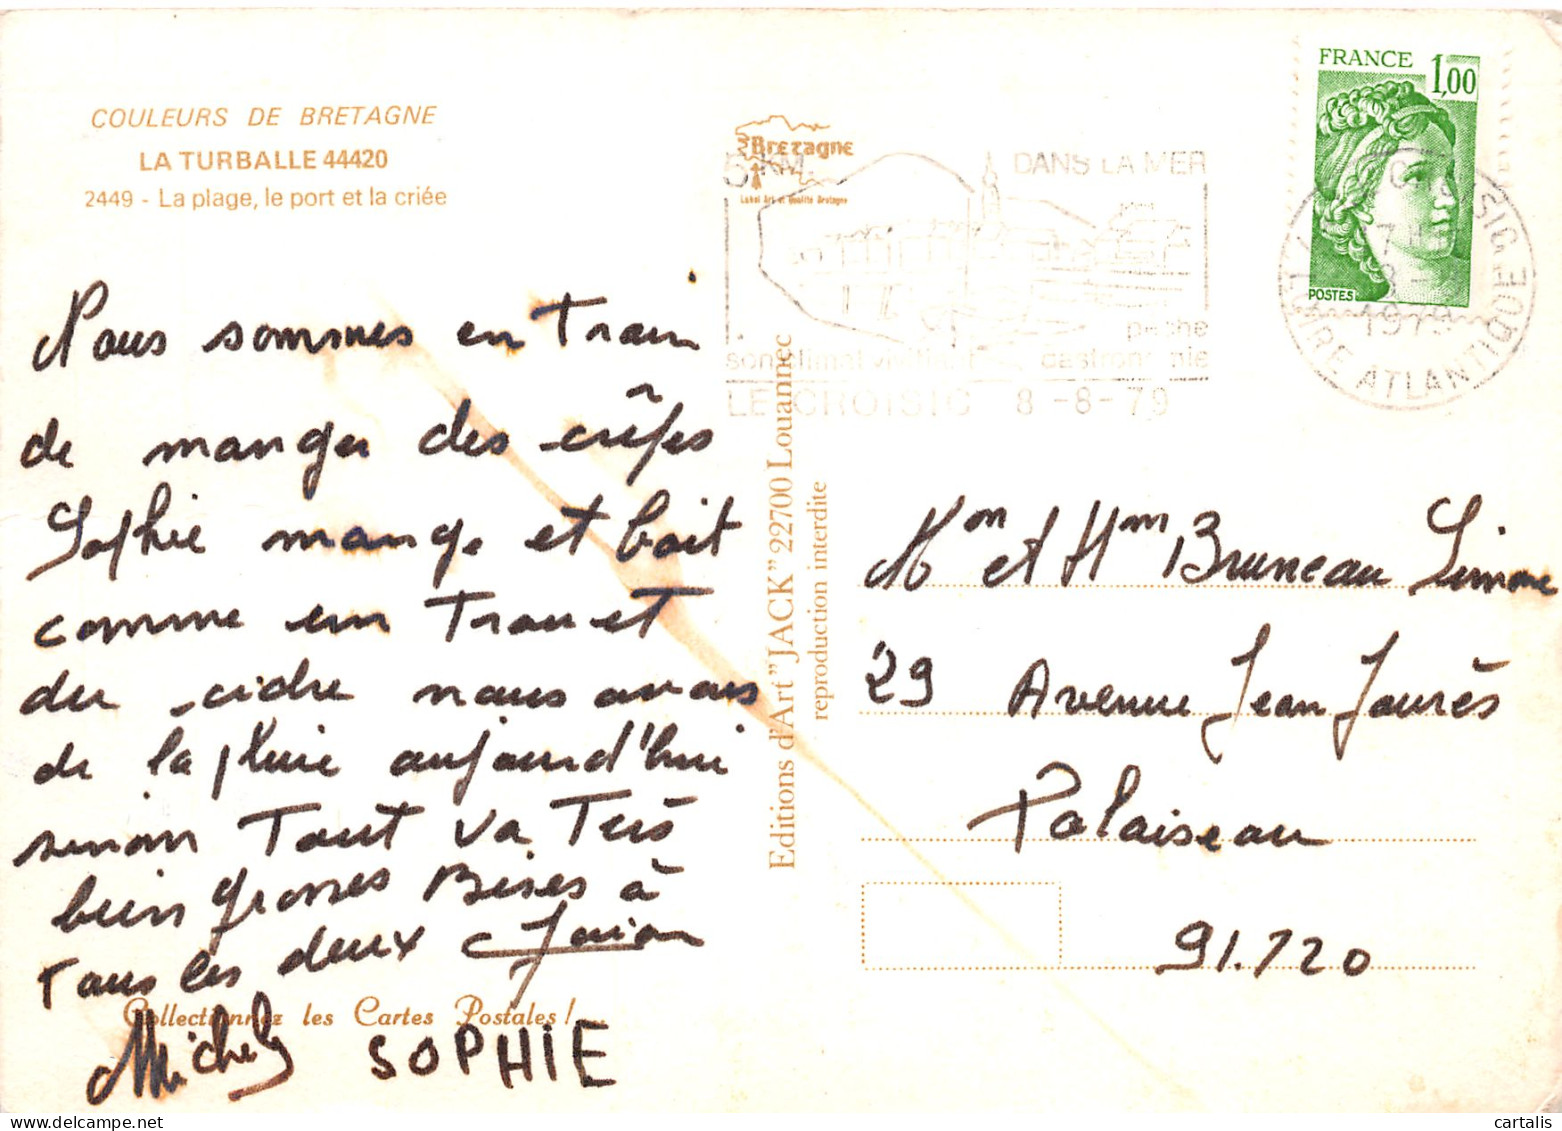 COULEURS DE BRETAGNE
LA TURBALLE 44420
2449 - La plage, le port et la criée
Nous sommes en Train
de manger des crêpes
Sophie mange et boit
comme un Trou et
du cidre nous avons
de la pluie aujourd'hui
sinon Tout va Très
bien grosses Bises à
Tous les deux
Collectionnez les Cartes Postales !...
Michel SOPHIE
Bretagne
Label Art et Qualité Bretagne
5 KM. DANS LA MER
pêche
son climat vivifiant gastronomie
LE CROISIC 8-8-79
Editions d'Art "JACK" 22700 Louannec
reproduction interdite
FRANCE 1,00
POSTES
LE CROISIC
1979
LOIRE ATLANTIQUE
et Bruneau Simone
29 Avenue Jean Jaurès
Palaiseau
91.120
cartalis